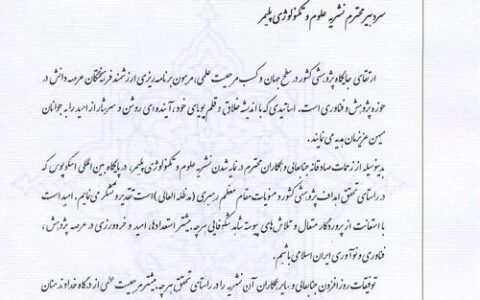 سردبیر محترم نشریه علوم و تکنولوژی پلیمر
ارتقای جایگاه پژوهشی کشور در سطح جهان و کسب مرجعیت علمی، مرهون برنامه ریزی ارزشمند فرهیختگان عرصه دانش در
حوزه پژوهش و فناوری است. اساتیدی که با اندیشه خلاق و قلم پویای خود، آینده ای روشن و سرشار از امید را به جوانان
میهن عزیزمان هدیه می نمایند.
بدینوسیله از زحمات صادقانه جنابعالی و همکاران محترم در نمایه شدن نشریه علوم و تکنولوژی پلیمر، در پایگاه بین المللی اسکوپوس که
در راستای تحقق اهداف پژوهشی کشور و منویات مقام معظم رهبری (مدظله العالی) است تقدیر و تشکر می نمایم. امید است
با استعانت از پروردگار متعال و تلاش های پیوسته شاهد شکوفایی هر چه بیشتر استعدادها، امید و خردورزی در عرصه پژوهش،
فناوری و نوآوری ایران اسلامی باشیم.
توفیقات روز افزون جنابعالی و سایر همکاران آن نشریه را در راستای تحقق هر چه بیشتر مرجعیت علمی از درگاه خداوند منان